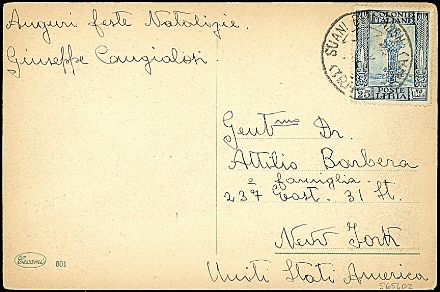 Auguri feste Natalizie.
Giuseppe Cangialosi
COLONIE
ITALIANE
SUANI
25
POSTE
LIBIA
Gent.mo Dr.
Attilio Barbera
e famiglia
237 East. 31 St.
New York
Uniti Stati America
565602
Cecami 601